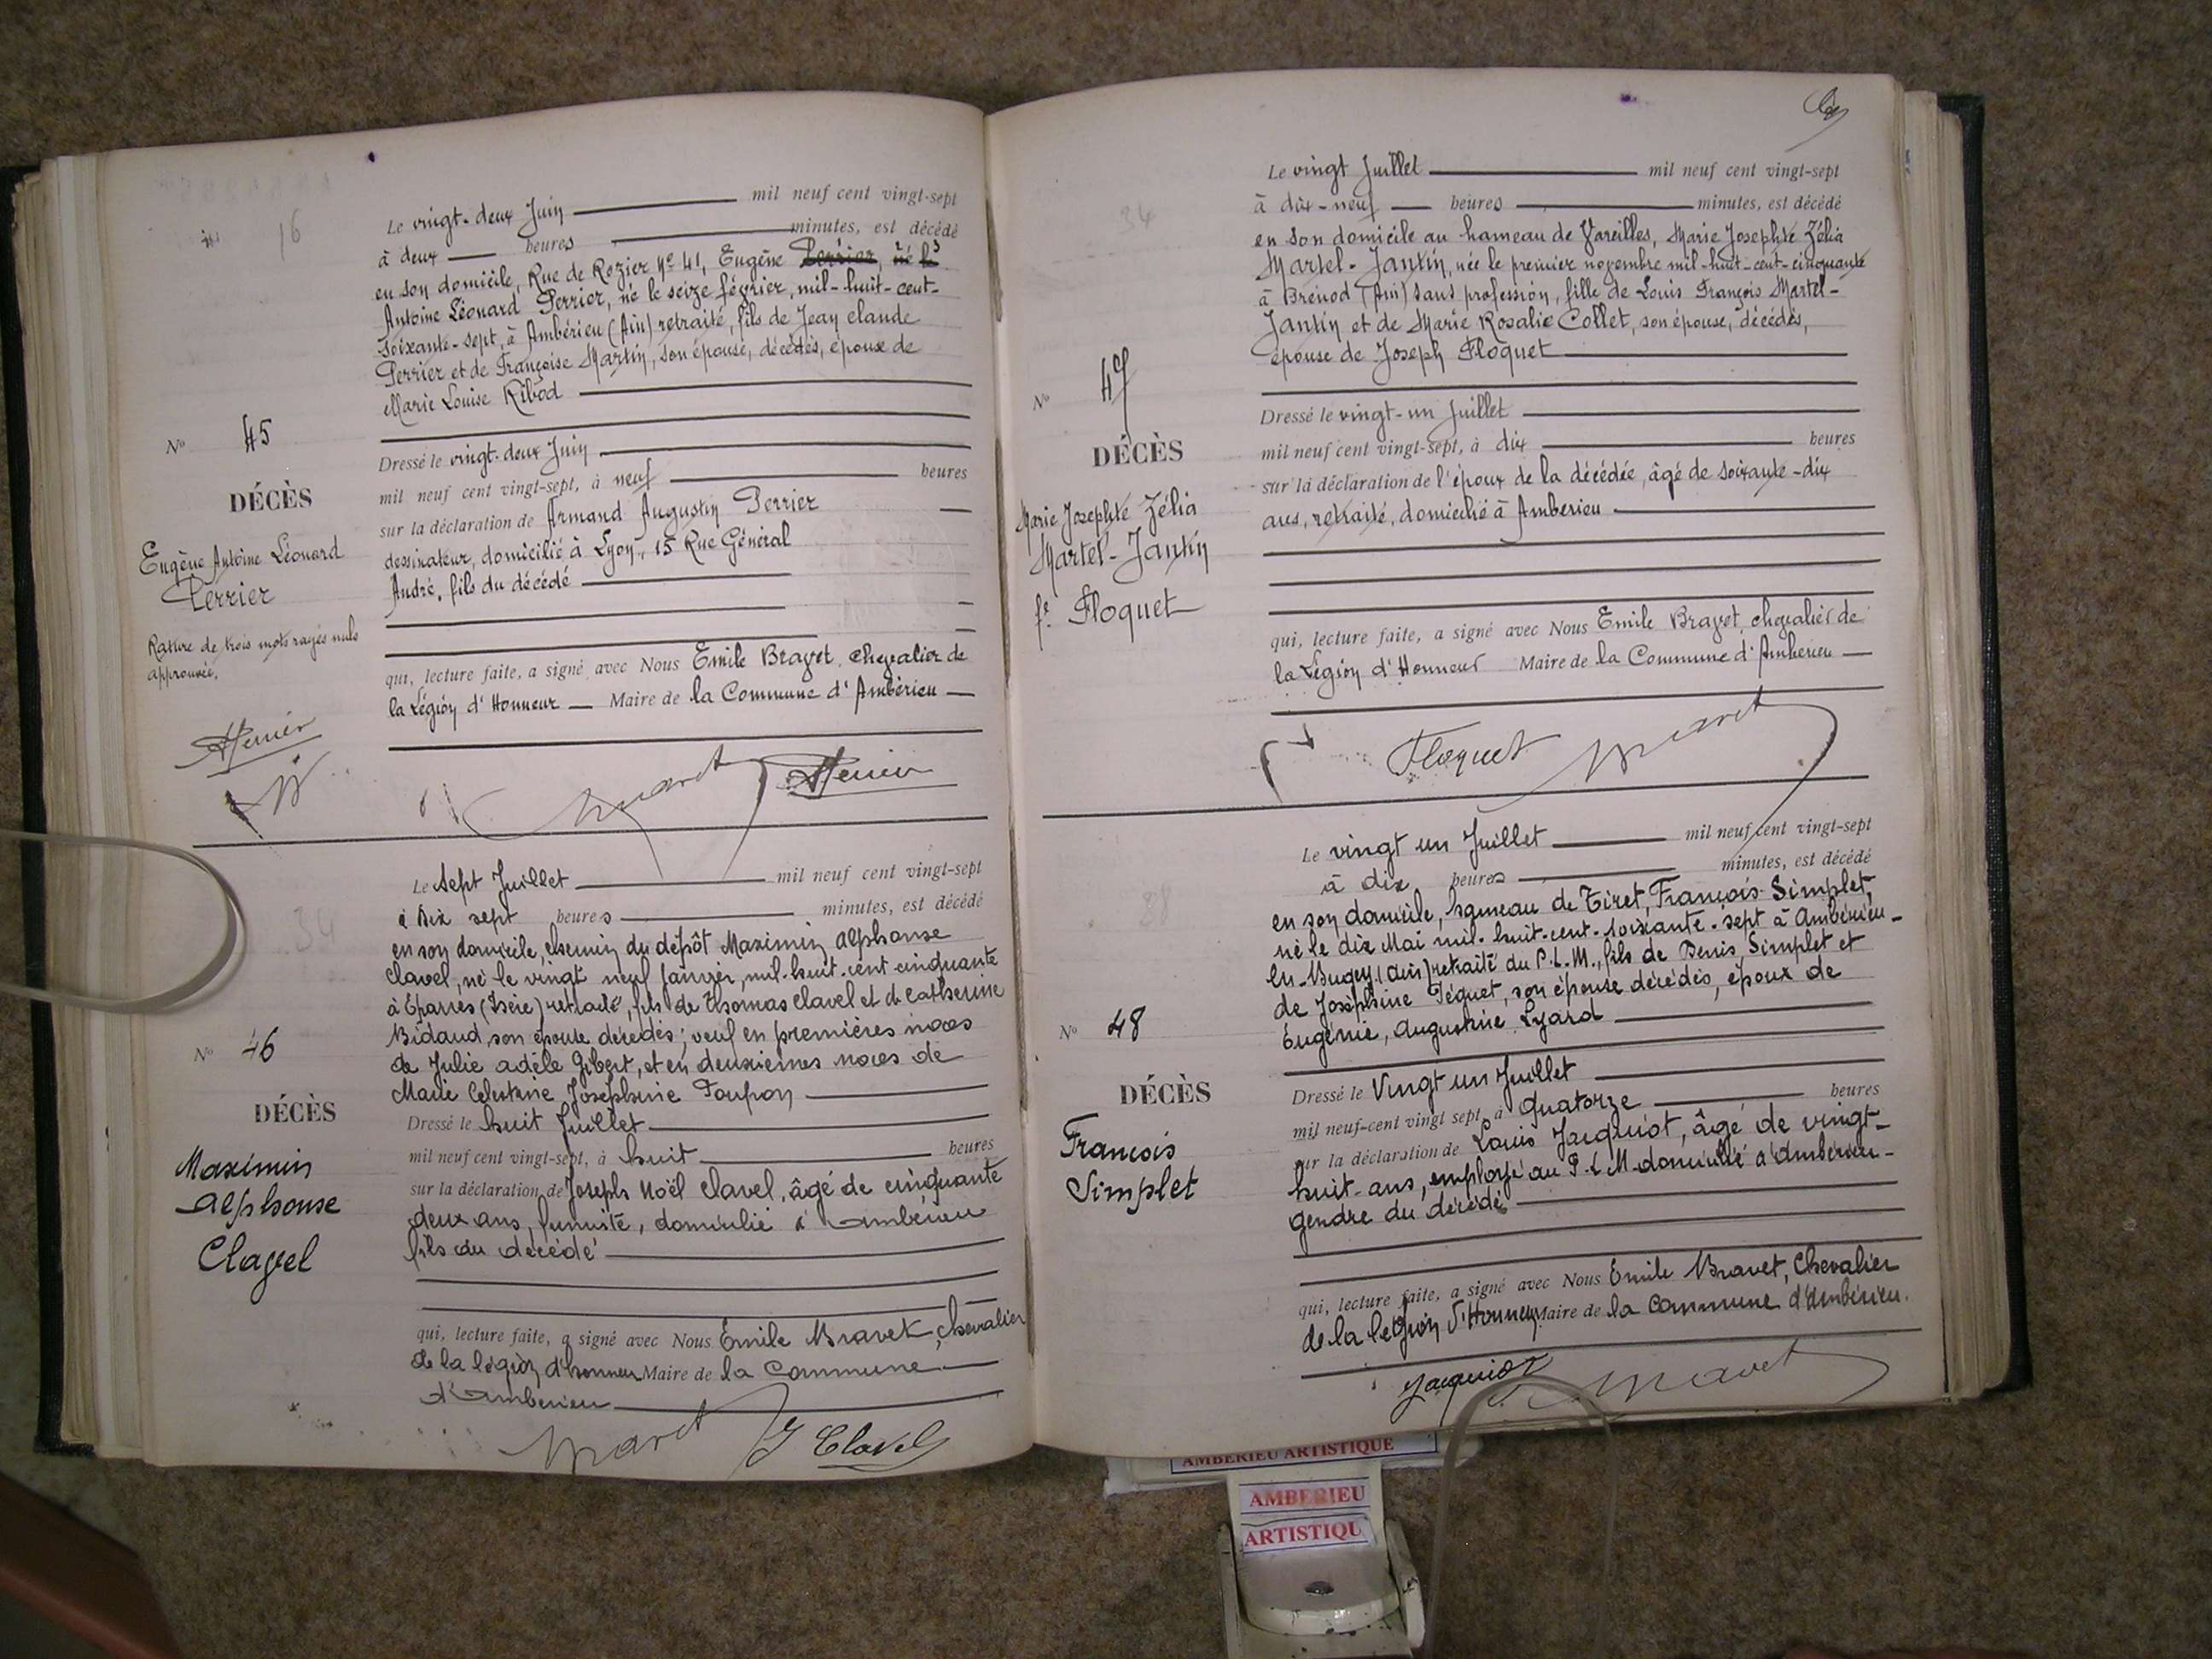 16
Le vingt-deux Juin mil neuf cent vingt-sept
à deux heures minutes, est décédé
en son domicile, Rue de Rozier Nº 41, Eugène Perrier, né le
Antoine Léonard Perrier, né le seize février, mil-huit-cent-
soixante-sept, à Ambérieu (Ain) retraité, fils de Jean Claude
Perrier et de Françoise Martin, son épouse, décédés, époux de
Marie Louise Ribod
Nº 45
DÉCÈS
Eugène Antoine Léonard
Perrier
Rature de trois mots rayés nuls
approuvée.
Dressé le vingt-deux Juin
mil neuf cent vingt-sept, à neuf heures
sur la déclaration de Armand Augustin Perrier
dessinateur, domicilié à Lyon, 15 Rue Général
André, fils du décédé
qui, lecture faite, a signé avec Nous Emile Bravet, chevalier de
la Légion d'Honneur Maire de la Commune d'Ambérieu
34
Le sept Juillet mil neuf cent vingt-sept
à Dix sept heures minutes, est décédé
en son domicile, chemin du depôt Maximin Alphonse
Clavel, né le vingt neuf Janvier, mil-huit-cent cinquante
à Eparres (Isère) retraité, fils de Thomas Clavel et de Catherine
Bidaud, son épouse décédés; veuf en premières noces
de Julie Adèle Gibert, et en deuxièmes noces de
Marie Celestine Joséphine Poupon
Nº 46
DÉCÈS
Maximin
Alphonse
Clavel
Dressé le huit Juillet
mil neuf cent vingt-sept, à huit heures
sur la déclaration de Joseph Noël Clavel, âgé de cinquante
deux ans, domicilié à Ambérieu
fils du décédé
qui, lecture faite, a signé avec Nous Emile Bravet, chevalier
de la légion d'honneur Maire de la Commune
d'Ambérieu
Bravet J Clavel
34
Le vingt Juillet mil neuf cent vingt-sept
à dix-neuf heures minutes, est décédé
en son domicile au hameau de Vareilles, Marie Josephte Zélia
Martel-Jantin, née le premier novembre mil-huit-cent-cinquante
à Brénod (Ain) sans profession, fille de Louis François Martel-
Jantin et de Marie Rosalie Collet, son épouse, décédés,
épouse de Joseph Floquet
Nº 47
DÉCÈS
Marie Josephte Zélia
Martel-Jantin
fe Floquet
Dressé le vingt-un Juillet
mil neuf cent vingt-sept, à dix heures
sur la déclaration de l'époux de la décédée, âgé de soixante-dix
ans, retraité, domicilié à Ambérieu
qui, lecture faite, a signé avec Nous Emile Bravet, chevalier de
la Légion d'Honneur Maire de la Commune d'Ambérieu
Floquet Bravet
38
Le vingt un Juillet mil neuf cent vingt-sept
à dix heures minutes, est décédé
en son domicile, hameau de Tiret, François Simplet,
né le dix Mai mil-huit-cent-soixante-sept à Ambérieu-
en-Bugey (Ain) retraité du P.L.M., fils de Denis Simplet et
de Joséphine Péquet, son épouse décédés, époux de
Eugénie, Augustine Lyard
Nº 48
DÉCÈS
François
Simplet
Dressé le Vingt un Juillet
mil neuf-cent vingt sept, à Quatorze heures
sur la déclaration de Louis Jacquiot, âgé de vingt-
huit-ans, employé au P.L.M. domicilié à Ambérieu-
gendre du décédé
qui, lecture faite, a signé avec Nous Emile Bravet, Chevalier
de la legion d'Honneur Maire de la Commune d'Ambérieu.
Jacquiot Bravet
AMBERIEU ARTISTIQUE
AMBERIEU
ARTISTIQU